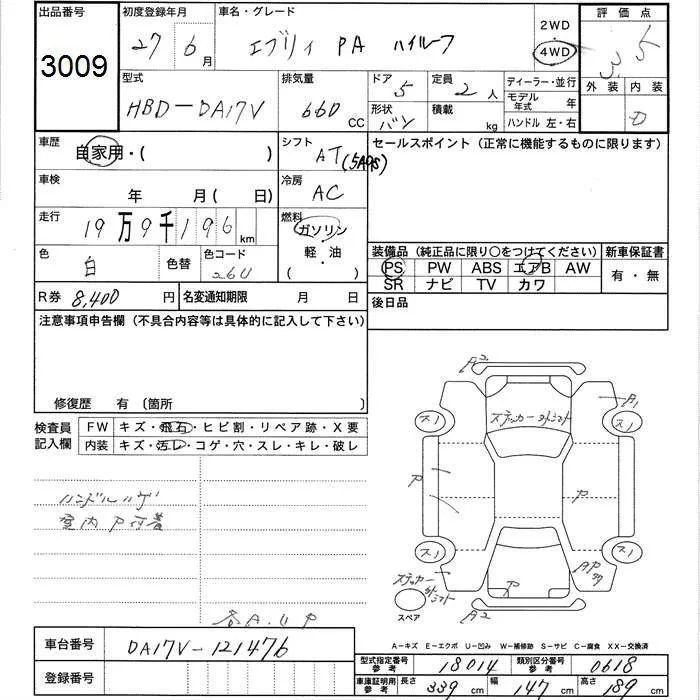 出品番号 初度登録年月 車名・グレード 2WD 評価点
3009 27 6月 エブリィ PA ハイルーフ 4WD 3.5
型式 排気量 ドア 5 定員 2 人 ディーラー・並行 外装 内装
HBD-DA17V 660 CC 形状 バン 積載 kg モデル年式 年 D
ハンドル 左・右
車歴 自家用・( ) シフト AT(5AGS) セールスポイント(正常に機能するものに限ります)
車検 年 月(日) 冷房 AC
走行 19万9千196km 燃料 ガソリン
軽・油
( ・ )
色 白 色替 色コード 26U 装備品(純正品に限り〇をつけてください) 新車保証書
PS PW ABS エアB AW 有・無
SR ナビ TV カワ
R券 8,400 円 名変通知期限 月 日 後日品
注意事項申告欄(不具合内容等は具体的に記入して下さい)
修復歴 有(箇所 )
検査員記入欄 FW キズ・飛石・ヒビ割・リペア跡・X要
内装 キズ・汚レ・コゲ・穴・スレ・キレ・破レ
ハンドルハゲ
室内P付着
各A.U P
A2
A1
ス1 ステッカー外シミト ス1
P P
ス1 ス1
ステッカー外シミト P AP
スペア A2
車台番号 DA17V-121476
登録番号
A-キズ E-エクボ U-凹み W-補修跡 S-サビ C-腐食 XX-交換済
型式指定番号参考 18014 類別区分番号参考 0618
車庫証明用参考 長さ 339cm 幅 147cm 高さ 189cm